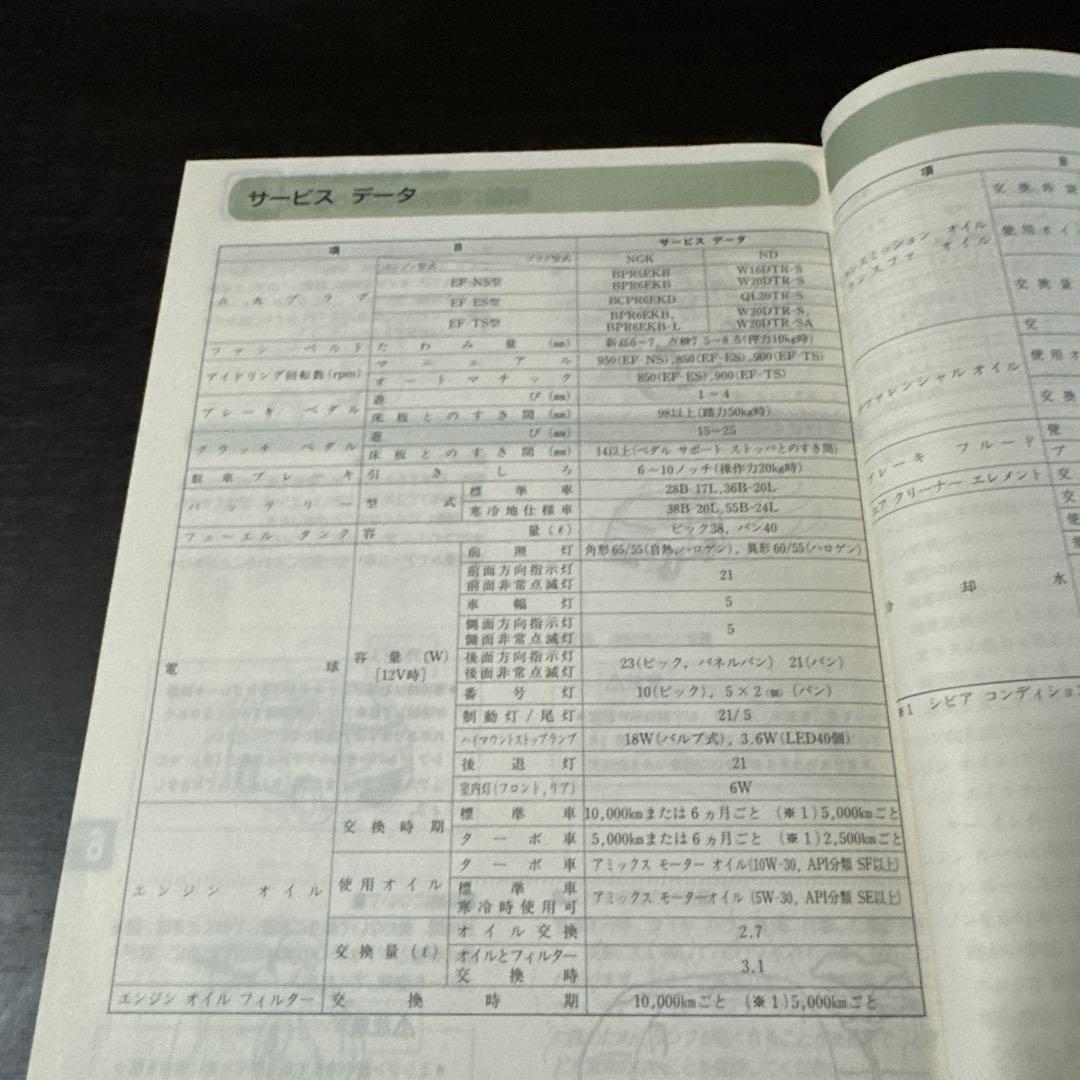 サービス データ
項 目 サービス データ
エンジン型式 プラグ型式 NGK ND
点火プラグ EF-NS型 BPR5EKB BPR6EKB W16DTR-S W20DTR-S
EF-ES型 BCPR6EKD QL20TR-S
EF-TS型 BPR6EKB, BPR6EKB-L W20DTR-S, W20DTR-SA
ファン ベルト たわみ量 (mm) 新品6~7, 点検7.5~8.5(押力10kg時)
アイドリング回転数(rpm) マニュアル 950(EF-NS),850(EF-ES),900(EF-TS)
オートマチック 850(EF-ES),900(EF-TS)
ブレーキ ペダル 遊び(mm) 1~4
床板とのすき間(mm) 98以上(踏力50kg時)
クラッチ ペダル 遊び(mm) 15~25
床板とのすき間(mm) 14以上(ペダル サポート ストッパとのすき間)
駐車ブレーキ 引きしろ 6~10ノッチ(操作力20kg時)
バッテリー 型式 標準車 28B-17L,36B-20L
寒冷地仕様車 38B-20L,55B-24L
フューエル タンク 容量(ℓ) ピック38, バン40
電球 容量(W) [12V時] 前照灯 角形65/55(自熱,ハロゲン), 異形60/55(ハロゲン)
前面方向指示灯 前面非常点滅灯 21
車幅灯 5
側面方向指示灯 側面非常点滅灯 5
後面方向指示灯 後面非常点滅灯 23(ピック, パネルバン) 21(バン)
番号灯 10(ピック), 5×2(個)(バン)
制動灯/尾灯 21/5
ハイマウントストップランプ 18W(バルブ式), 3.6W(LED40個)
後退灯 21
室内灯(フロント,リア) 6W
エンジン オイル 交換時期 標準車 10,000kmまたは6ヵ月ごと (※1)5,000kmごと
ターボ車 5,000kmまたは6ヵ月ごと (※1)2,500kmごと
使用オイル ターボ車 アミックス モーター オイル(10W-30, API分類 SF以上)
標準車 寒冷時使用可 アミックス モーターオイル (5W-30, API分類 SE以上)
交換量(ℓ) オイル交換 2.7
オイルとフィルター交換時 3.1
エンジン オイル フィルター 交換時期 10,000kmごと (※1)5,000kmごと
6
項
交換時期
オイル
使用オイ
オイル
交換量
交
ファレンシャル オイル
使用オ
交換
ブレーキ フルード
エア クリーナー エレメント 交
冷却水
※1 シビア コンディション